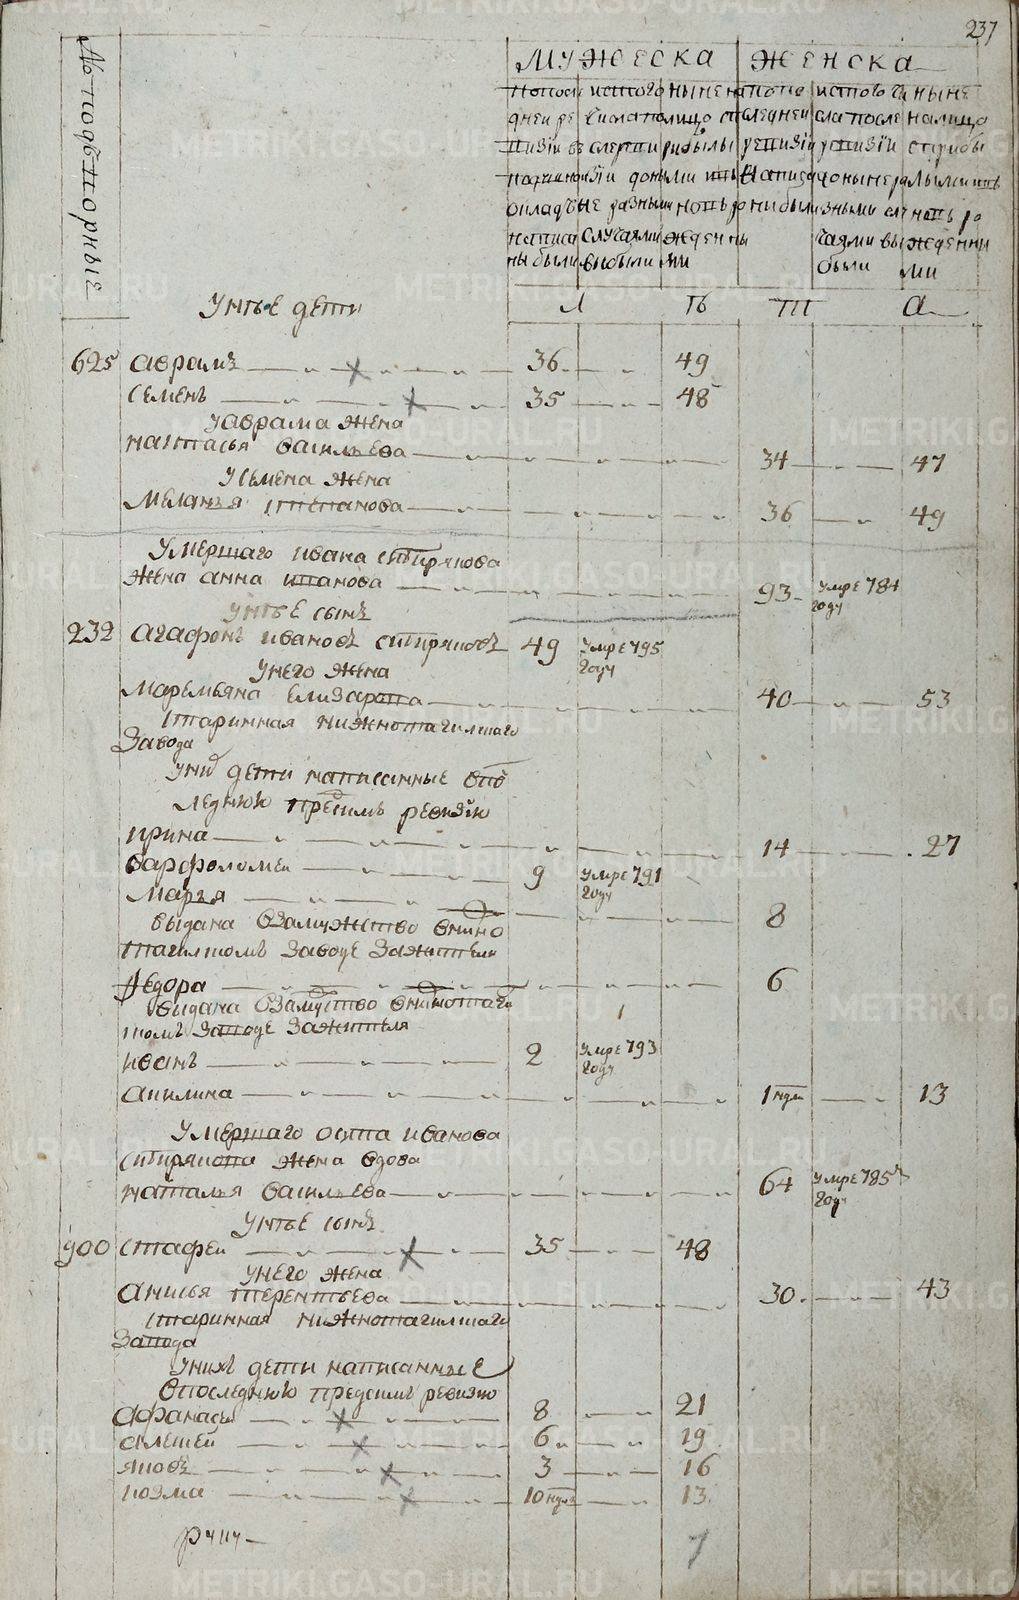 237
№ подворные
МУЖЕСКА ЖЕНСКА
по после из того ныне на по по из того ч ныне
дней ре числа по лицо с последней сла после на лицо
визїи в смерти рибылы ревизїи ревизїи с прибы
ны были выбыли ми были ми
Л Ѣ Т А
У нѣе дети
625 Аврамъ 36 49
Семенъ 35 48
У Аврама жена
Настасья Васильева 34 47
У Семена жена
Меланья Степанова 36 49
Умершаго Ивана Спирякова
жена Анна 93 умре 784 году
У нѣе сынъ
232 Агафонъ Ивановъ Спиряковъ 49 умре 795 году
У него жена
Маремьяна Елизарова 40 53
старинная Нижнотагилскаго
завода
У них дети написанные в пос
леднюю пред симъ ревизїю
Ирина 14 27
Варфоломеи 9 умре 791 году
Марья 8
выдана в замужство в нижно
тагилскомъ заводе за жителя
Федора 6
выдана в замужство в нижнотаги
скомъ заводе за жителя
Иванъ 2 умре 793 году
Акилина 1 нди 13
Умершаго Осипа Иванова
Спирякова жена вдова
Наталья Васильева 64 умре 785 году
У нѣе сынъ
900 Стафеи 35 48
У него жена
Анисья Терентьева 30 43
старинная Нижнотагилскаго
завода
У нихъ дети написанные
в последнюю пред симъ ревизию
Афанасеи 8 21
Алексеи 6 19
Яковъ 3 16
Козма 10 нди 13
7